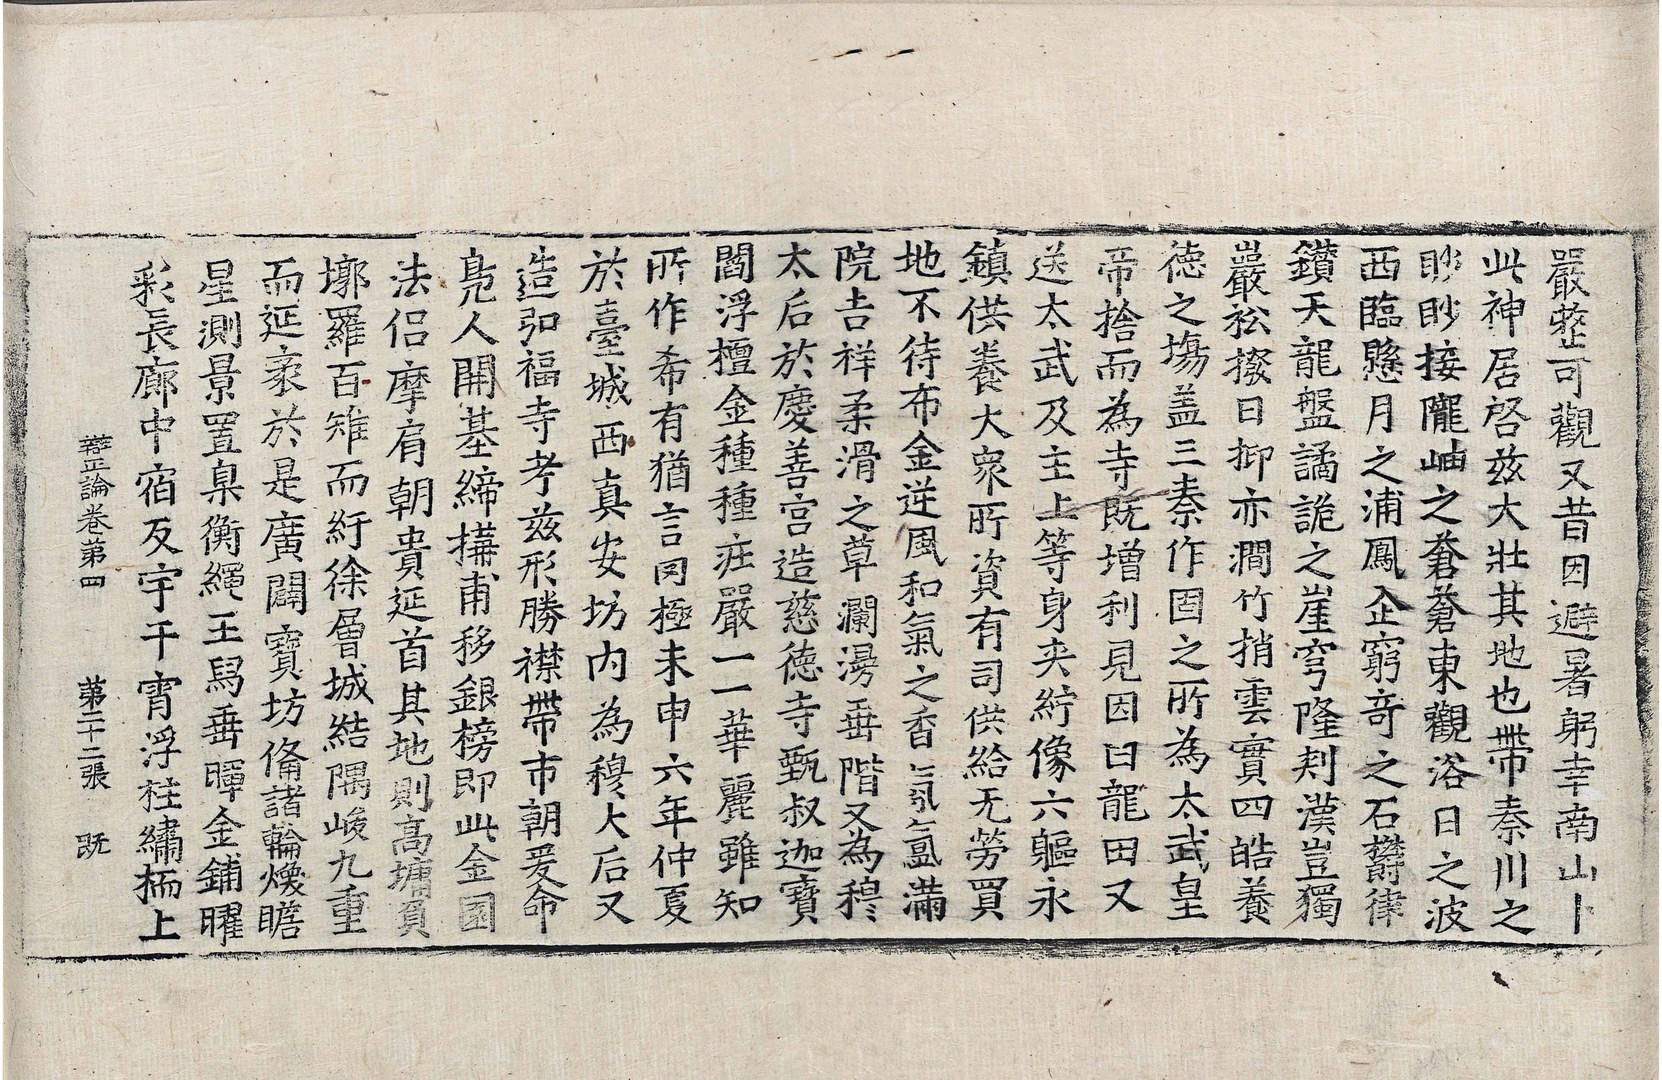 嚴整可觀又昔因避暑躬幸南山卜
此神居啓玆大壯其地也帶秦川之
眇眇接隴岫之蒼蒼東觀浴日之波
西臨懸月之浦鳳企窮奇之石欝律
鑚天龍盤譎詭之崖穹隆刾漢豈獨
巖松擬日抑亦澗竹捎雲實四皓養
徳之塲盖三秦作固之所為太武皇
帝捨而為寺既增利見因曰龍田又
送太武及主上等身夾紵像六軀永
鎮供養大衆所資有司供給无勞買
地不待布金逆風和氣之香氛氳滿
院吉祥柔滑之草瀾漫垂階又為穆
太后於慶善宮造慈徳寺甄叔迦寶
閻浮檀金種種莊嚴一一華麗雖知
所作希有猶言罔極未申六年仲夏
於臺城西真安坊内為穆大后又
造弘福寺考玆形勝襟帶市朝爰命
鳧人開基締搆甫移銀榜即此金園
法侣摩肩朝貴延首其地則高墉負
墎羅百雉而紆徐層城結隅峻九重
而延袤於是廣闢寶坊俻諸輪煥瞻
星測景置臬衡繩玉舄垂暉金鋪曜
彩長廊中宿反宇干霄浮柱繡栭上
辯正論卷第四　第二十二張　既